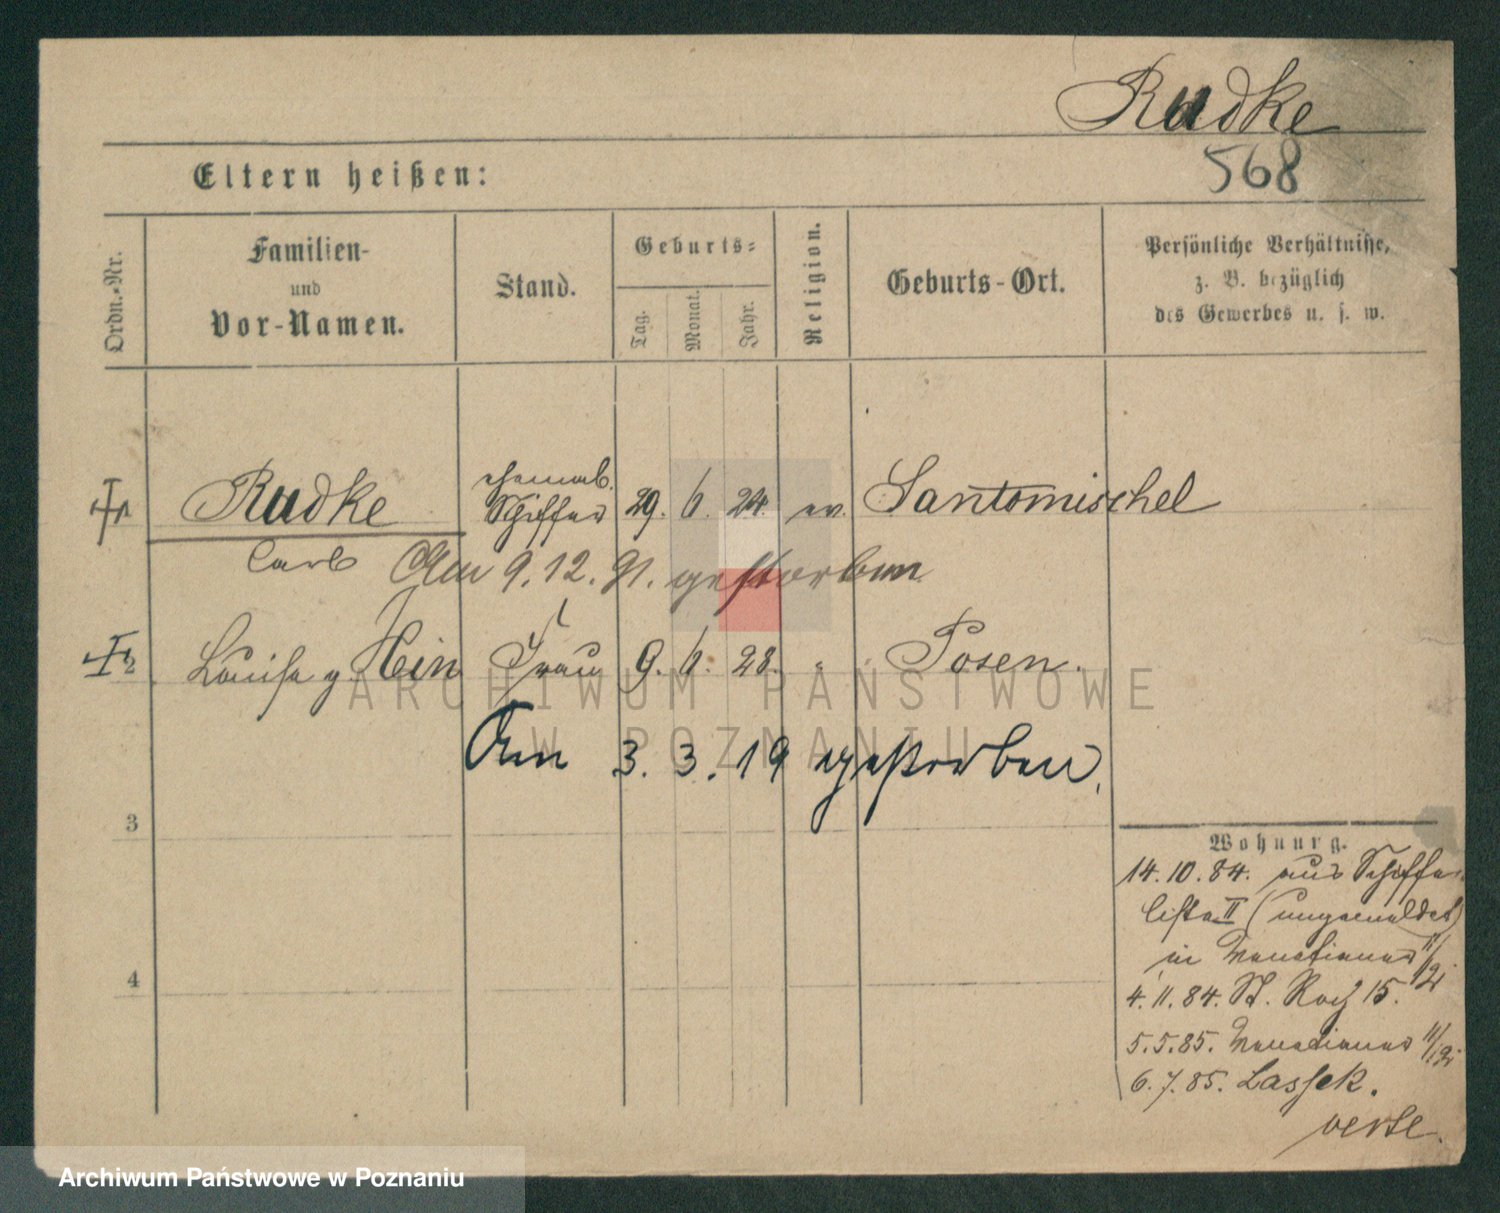 Radke
568
Eltern heißen:
Ordn.-Nr.
Familien-
und
Vor-Namen.
Stand.
Geburts-
Tag.
Monat.
Jahr.
Religion.
Geburts-Ort.
Persönliche Verhältnisse,
z. B. bezüglich
des Gewerbes u. s. w.
Radke ehemal. Schiffer 29. 6. 24. ev. Santomischel
Carl Am 9.12.91. gestorben
2 Louise g. Hein Frau 9. 6. 28. " Posen.
Am 3. 3. 19 gestorben.
3
4
Wohnung.
14.10.84. aus Schiffer
liste II (umgemeldet)
in Venetianer 11/12
4.11.84. St. Roch 15.
5.5.85. Venetianer 11/12
6.7.85. Lassek.
verte.
ARCHIWUM PAŃSTWOWE
W POZNANIU
Archiwum Państwowe w Poznaniu